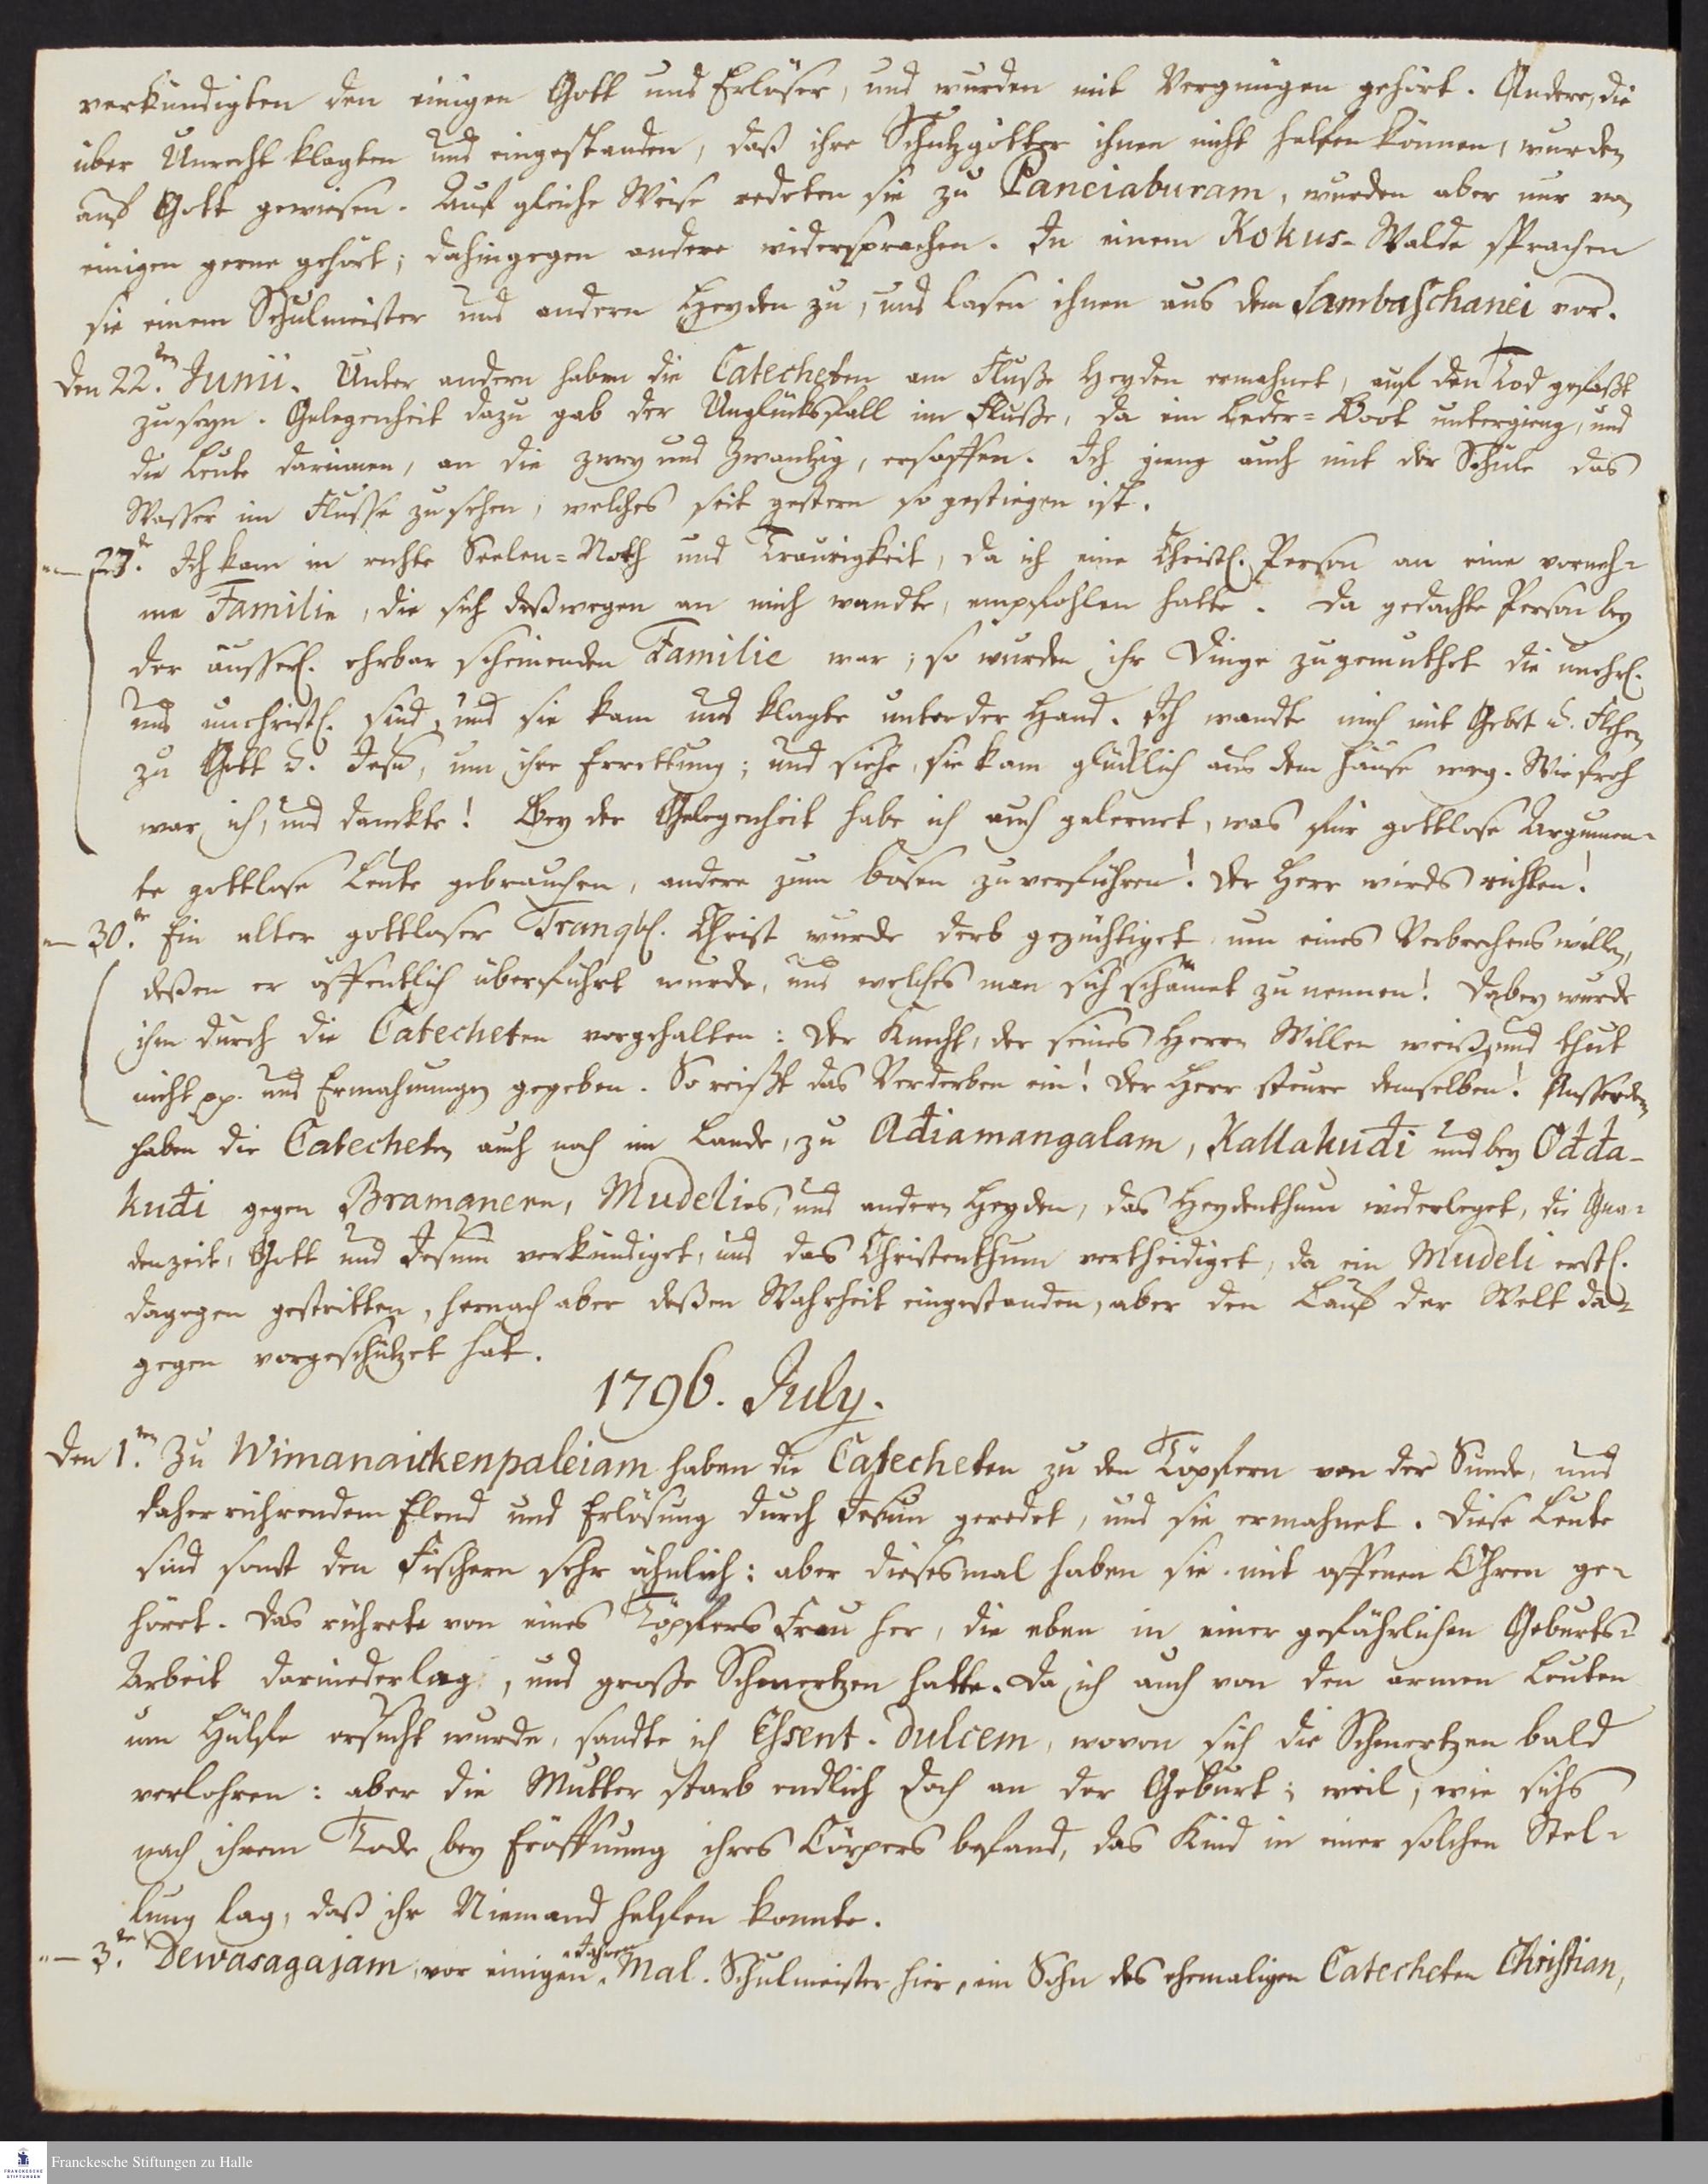 verkündigten den einigen Gott und Erlöser, und wurden mit Vergnügen gehört. Andere, die
über Unrecht klagten und eingestanden, daß ihre Schutzgötter ihnen nicht helfen können, wurden
auf Gott gewiesen. Auf gleiche Weise redeten sie zu Panciaburam, wurden aber nur von
einigen gerne gehört; dahingegen andere widersprachen. In einem Kokus-Walde sprachen
sie einem Schulmeister und andern Heyden zu, und lasen ihnen aus dem Sambaschanei vor.
Den 22.ten Junii. Unter andern haben die Catecheten am Fluße Heyden ermahnet, auf den Tod gefaßt
zu seyn. Gelegenheit dazu gab der Unglücksfall im Fluße, da ein Leder-Boot untergieng, und
die Leute darinnen, an die zwey und Zwantzig, ersoffen. Ich gieng auch mit der Schule das
Wasser im Flusse zu sehen, welches seit gestern so gestiegen ist.
"— 27.te Ich kam in rechte Seelen-Noth und Traurigkeit, da ich eine Christl. Person an eine vorneh-
me Familie, die sich deßwegen an mich wandte, empfohlen hatte. Da gedachte Person bey
der äusserl. ehrbar scheinenden Familie war; so wurden ihr Dinge zugemuthet die unehrl.
und unchristl. sind, und sie kam und klagte unter der Hand. Ich wandte mich mit Gebet u. Flehen
zu Gott u. Jesu, um ihre Errettung; und siehe, sie kam glücklich aus dem Hause weg. Wie froh
war ich, und danckte! Bey der Gelegenheit habe ich auch gelernet, was für gottlose Argumen-
te gottlose Leute gebrauchen, andere zum bösen zu verführen! Der Herr wirds richten!
"— 30.te Ein alter gottloser Tranqb. Christ wurde derb gezüchtiget um eines Verbrechens willen,
deßen er öffentlich überführt wurde, und welches man sich schämet zu nennen! Dabey wurde
ihm durch die Catecheten vorgehalten: Der Knecht, der seines Herrn Willen weiß, und thut
nicht pp. und Ermahnungen gegeben. So reißt das Verderben ein! Der Herr steure demselben! Ausserdem
haben die Catecheten auch noch im Lande, zu Adiamangalam, Kallakudi und bey Odda-
kudi gegen Bramanern, Mudelies, und andern Heyden, das Heydenthum widerleget, die Gna-
denzeit, Gott und Jesum verkündiget, und das Christenthum vertheidiget, da ein Mudeli erstl.
dagegen gestritten, hernach aber deßen Wahrheit eingestanden, aber den Lauf der Welt da-
gegen vorgeschützet hat.
1796. July.
Den 1.ten Zu Wimanaickenpaleiam haben die Catecheten zu den Töpfern von der Sünde, und
daher rührendem Elend und Erlösung durch Jesum geredet, und sie ermahnet. Diese Leute
sind sonst den Fischern sehr ähnlich: aber diesesmal haben sie mit offenen Ohren ge-
höret. Das rührete von eines Töpfers Frau her, die eben in einer gefährlichen Geburts-
Arbeit darniederlag, und große Schmertzen hatte. Da ich auch von den armen Leuten
um Hülfe ersucht wurde, sandte ich Essent. dulcem, wovon sich die Schmertzen bald
verlohren: aber die Mutter starb endlich doch an der Geburt; weil, wie sichs
nach ihrem Tode bey Eröffnung ihres Cörpers befand, das Kind in einer solchen Stel-
lung lag, daß ihr Niemand helfen konnte.
"— 3.te Dewasagajam, vor einigen Jahren Mal. Schulmeister hier, ein Sohn des ehemaligen Catecheten Christian,
FRANCKESCHE STIFTUNGEN
Franckesche Stiftungen zu Halle